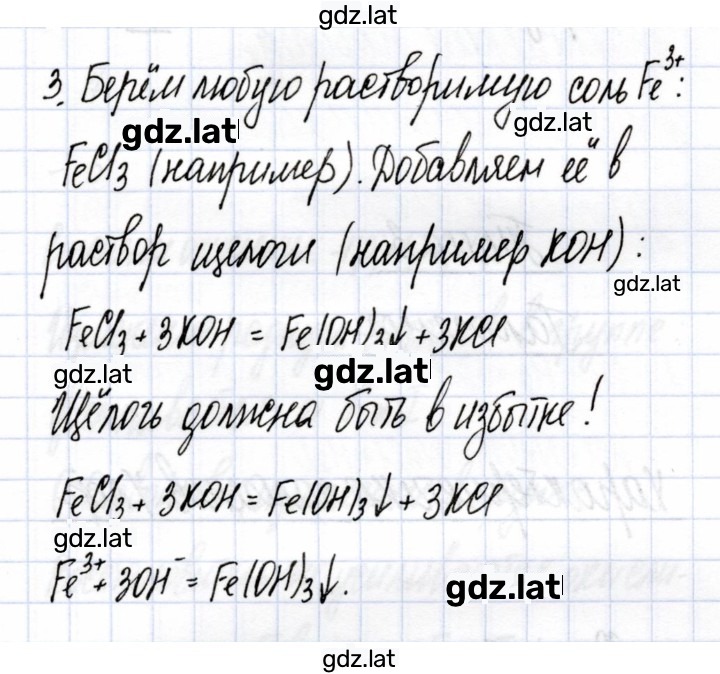 gdz.lat
3. Берём любую растворимую соль Fe³⁺:
gdz.lat
gdz.lat
FeCl₃ (например). Добавляем её в
раствор щелочи (например KOH):
gdz.lat
FeCl₃ + 3KOH = Fe(OH)₃↓ + 3KCl
gdz.lat
gdz.lat
Щёлочь должна быть в избытке!
FeCl₃ + 3KOH = Fe(OH)₃↓ + 3KCl
gdz.lat
Fe³⁺ + 3OH⁻ = Fe(OH)₃↓.
gdz.lat
gdz.lat